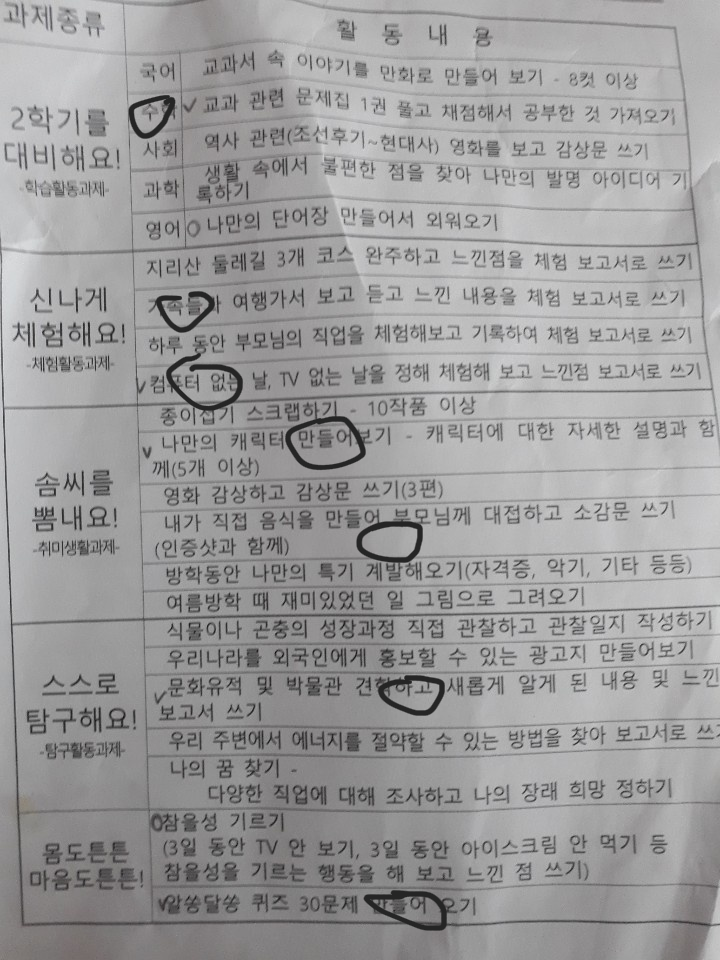 과제종류
활 동 내 용
2학기를
대비해요!
-학습활동과제-
국어 교과서 속 이야기를 만화로 만들어 보기 - 8컷 이상
수학 ✓ 교과 관련 문제집 1권 풀고 채점해서 공부한 것 가져오기
사회 역사 관련(조선후기~현대사) 영화를 보고 감상문 쓰기
과학 생활 속에서 불편한 점을 찾아 나만의 발명 아이디어 기
록하기
영어 O 나만의 단어장 만들어서 외워오기
신나게
체험해요!
-체험활동과제-
지리산 둘레길 3개 코스 완주하고 느낀점을 체험 보고서로 쓰기
가족들과 여행가서 보고 듣고 느낀 내용을 체험 보고서로 쓰기
하루 동안 부모님의 직업을 체험해보고 기록하여 체험 보고서로 쓰기
✓ 컴퓨터 없는 날, TV 없는 날을 정해 체험해 보고 느낀점 보고서로 쓰기
솜씨를
뽐내요!
-취미생활과제-
종이접기 스크랩하기 - 10작품 이상
✓ 나만의 캐릭터 만들어보기 - 캐릭터에 대한 자세한 설명과 함
께(5개 이상)
영화 감상하고 감상문 쓰기(3편)
내가 직접 음식을 만들어 부모님께 대접하고 소감문 쓰기
(인증샷과 함께)
방학동안 나만의 특기 계발해오기(자격증, 악기, 기타 등등)
여름방학 때 재미있었던 일 그림으로 그려오기
스스로
탐구해요!
-탐구활동과제-
식물이나 곤충의 성장과정 직접 관찰하고 관찰일지 작성하기
우리나라를 외국인에게 홍보할 수 있는 광고지 만들어보기
✓ 문화유적 및 박물관 견학하고 새롭게 알게 된 내용 및 느낀
보고서 쓰기
우리 주변에서 에너지를 절약할 수 있는 방법을 찾아 보고서로 쓰기
나의 꿈 찾기 -
다양한 직업에 대해 조사하고 나의 장래 희망 정하기
몸도튼튼
마음도튼튼!
O 참을성 기르기
(3일 동안 TV 안 보기, 3일 동안 아이스크림 안 먹기 등
참을성을 기르는 행동을 해 보고 느낀 점 쓰기)
✓ 알쏭달쏭 퀴즈 30문제 만들어 오기